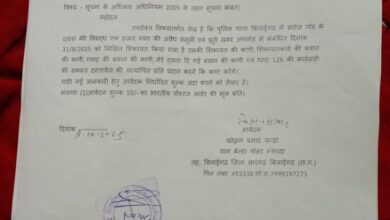 विषय - सूचना के अधिकार अधिनियम 2005 के तहत सूचना बाबत।
महोदय
उपरोक्त विषयांतर्गत लेख है कि पुलिस थाना बिलाईगढ़ में सरोज गोंड़ के
द्वारा मेरे विरुद्ध एक हजार रुपए की अवैध वसूली एवं झूठे खबर अपलोड से संबंधित दिनांक
31/8/2025 को लिखित शिकायत किया गया है उसकी शिकायत की कापी, शिकायतकर्ता की बयान
की कापी, गवाह की बयान की कापी, मेरे द्वारा दि गई बयान की कापी एवं धारा 126 की कार्यवाही
की समस्त दस्तावेज की सत्यापित प्रति प्रदान करने कि कष्ट करेंगे।
चाही गई जानकारी हेतु आवेदक निर्धारित शुल्क अदा करने को तैयार है।
संलग्न (1)आवेदन शुल्क 10/-का भारतीय पोस्टल आर्डर की मूल प्रति।
दिनांक
आवेदक
प्रसाद चन्द्रा
ग्राम बेल्हा पोस्ट
तह. बिलाईगढ़ जिला सारंगढ़ बिलाईगढ़ (छ.ग.)
पिन नंबर 493338 मो.न.7999197275